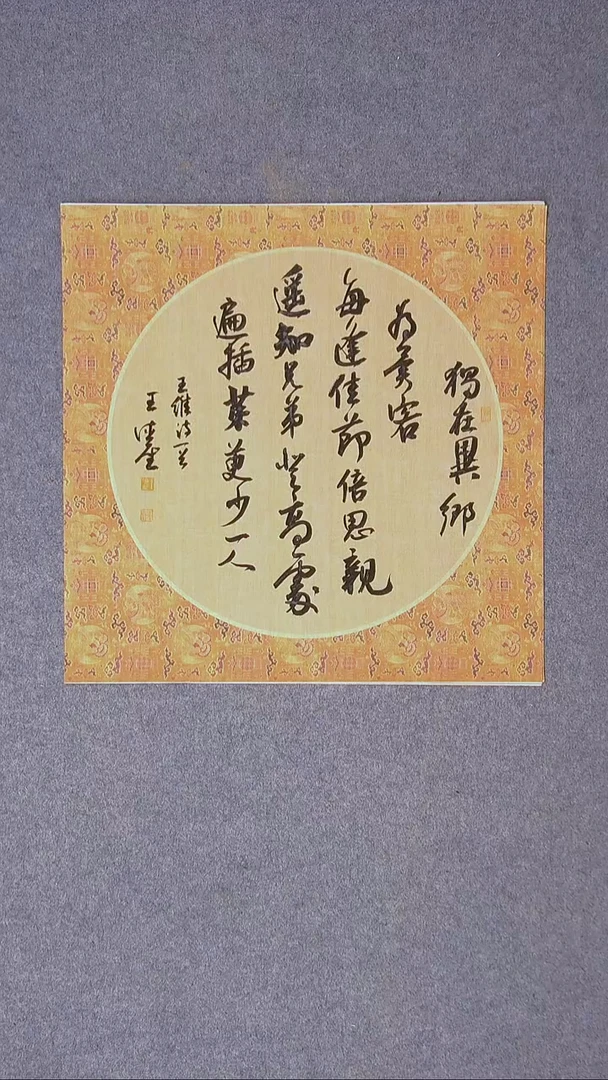 獨在異鄉
為異客
每逢佳節倍思親
遥知兄弟登高處
遍插茱萸少一人
王維詩一首
王